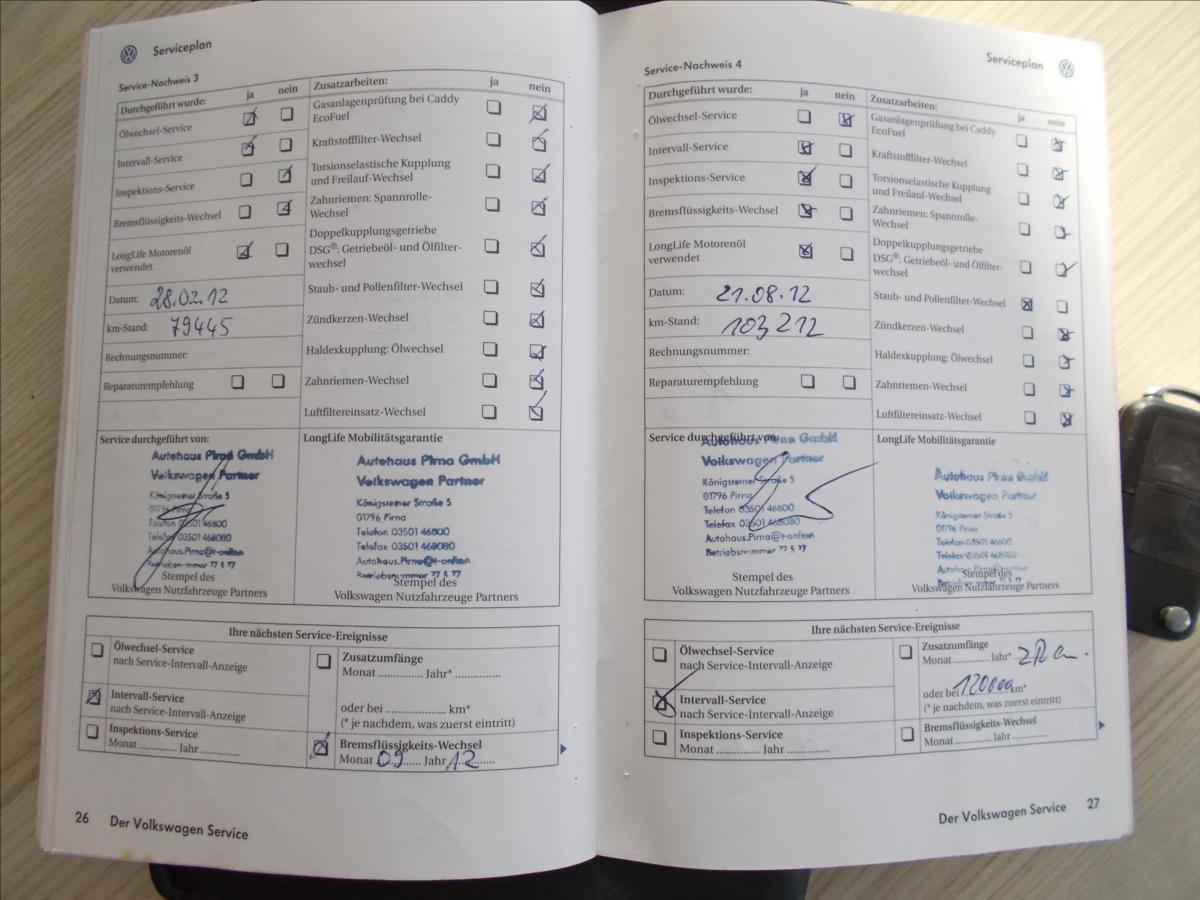 Serviceplan
Service-Nachweis 3
Durchgeführt wurde: ja nein
Ölwechsel-Service
Intervall-Service
Inspektions-Service
Bremsflüssigkeits-Wechsel
LongLife Motorenöl
verwendet
Datum: 28.02.12
km-Stand: 79445
Rechnungsnummer:
Reparaturempfehlung
Zusatzarbeiten: ja nein
Gasanlagenprüfung bei Caddy
EcoFuel
Kraftstofffilter-Wechsel
Torsionselastische Kupplung
und Freilauf-Wechsel
Zahnriemen: Spannrolle-
Wechsel
Doppelkupplungsgetriebe
DSG®: Getriebeöl- und Ölfilter-
wechsel
Staub- und Pollenfilter-Wechsel
Zündkerzen-Wechsel
Haldexkupplung: Ölwechsel
Zahnriemen-Wechsel
Luftfiltereinsatz-Wechsel
Service durchgeführt von:
Autohaus Pirna GmbH
Volkswagen Partner
Königsteiner Straße 5
01796 Pirna
Telefon 03501 46800
Telefax 03501 468080
Autohaus.Pirna@t-online
Betriebsnummer 77 5 77
Stempel des
Volkswagen Nutzfahrzeuge Partners
LongLife Mobilitätsgarantie
Autohaus Pirna GmbH
Volkswagen Partner
Königsteiner Straße 5
01796 Pirna
Telefon 03501 46800
Telefax 03501 468080
Autohaus.Pirna@t-online
Betriebsnummer 77 5 77
Stempel des
Volkswagen Nutzfahrzeuge Partners
Ihre nächsten Service-Ereignisse
Ölwechsel-Service
nach Service-Intervall-Anzeige
Intervall-Service
nach Service-Intervall-Anzeige
Inspektions-Service
Monat ............ Jahr ............
Zusatzumfänge
Monat ............ Jahr* ............
oder bei .................... km*
(* je nachdem, was zuerst eintritt)
Bremsflüssigkeits-Wechsel
Monat 09 Jahr 12
26 Der Volkswagen Service
Serviceplan
Service-Nachweis 4
Durchgeführt wurde: ja nein
Ölwechsel-Service
Intervall-Service
Inspektions-Service
Bremsflüssigkeits-Wechsel
LongLife Motorenöl
verwendet
Datum: 21.08.12
km-Stand: 103212
Rechnungsnummer:
Reparaturempfehlung
Zusatzarbeiten: ja nein
Gasanlagenprüfung bei Caddy
EcoFuel
Kraftstofffilter-Wechsel
Torsionselastische Kupplung
und Freilauf-Wechsel
Zahnriemen: Spannrolle-
Wechsel
Doppelkupplungsgetriebe
DSG®: Getriebeöl- und Ölfilter-
wechsel
Staub- und Pollenfilter-Wechsel
Zündkerzen-Wechsel
Haldexkupplung: Ölwechsel
Zahnriemen-Wechsel
Luftfiltereinsatz-Wechsel
Service durchgeführt von:
Autohaus Pirna GmbH
Volkswagen Partner
Königsteiner Straße 5
01796 Pirna
Telefon 03501 46800
Telefax 03501 468080
Autohaus.Pirna@t-online
Betriebsnummer 77 5 77
Stempel des
Volkswagen Nutzfahrzeuge Partners
LongLife Mobilitätsgarantie
Autohaus Pirna GmbH
Volkswagen Partner
Königsteiner Straße 5
01796 Pirna
Telefon 03501 46800
Telefax 03501 468080
Autohaus.Pirna@t-online
Stempel des
Volkswagen Nutzfahrzeuge Partners
Ihre nächsten Service-Ereignisse
Ölwechsel-Service
nach Service-Intervall-Anzeige
Intervall-Service
nach Service-Intervall-Anzeige
Inspektions-Service
Monat ............ Jahr ............
Zusatzumfänge
Monat ............ Jahr*
oder bei 120000 km*
(* je nachdem, was zuerst eintritt)
Bremsflüssigkeits-Wechsel
Monat ............ Jahr ............
Der Volkswagen Service 27